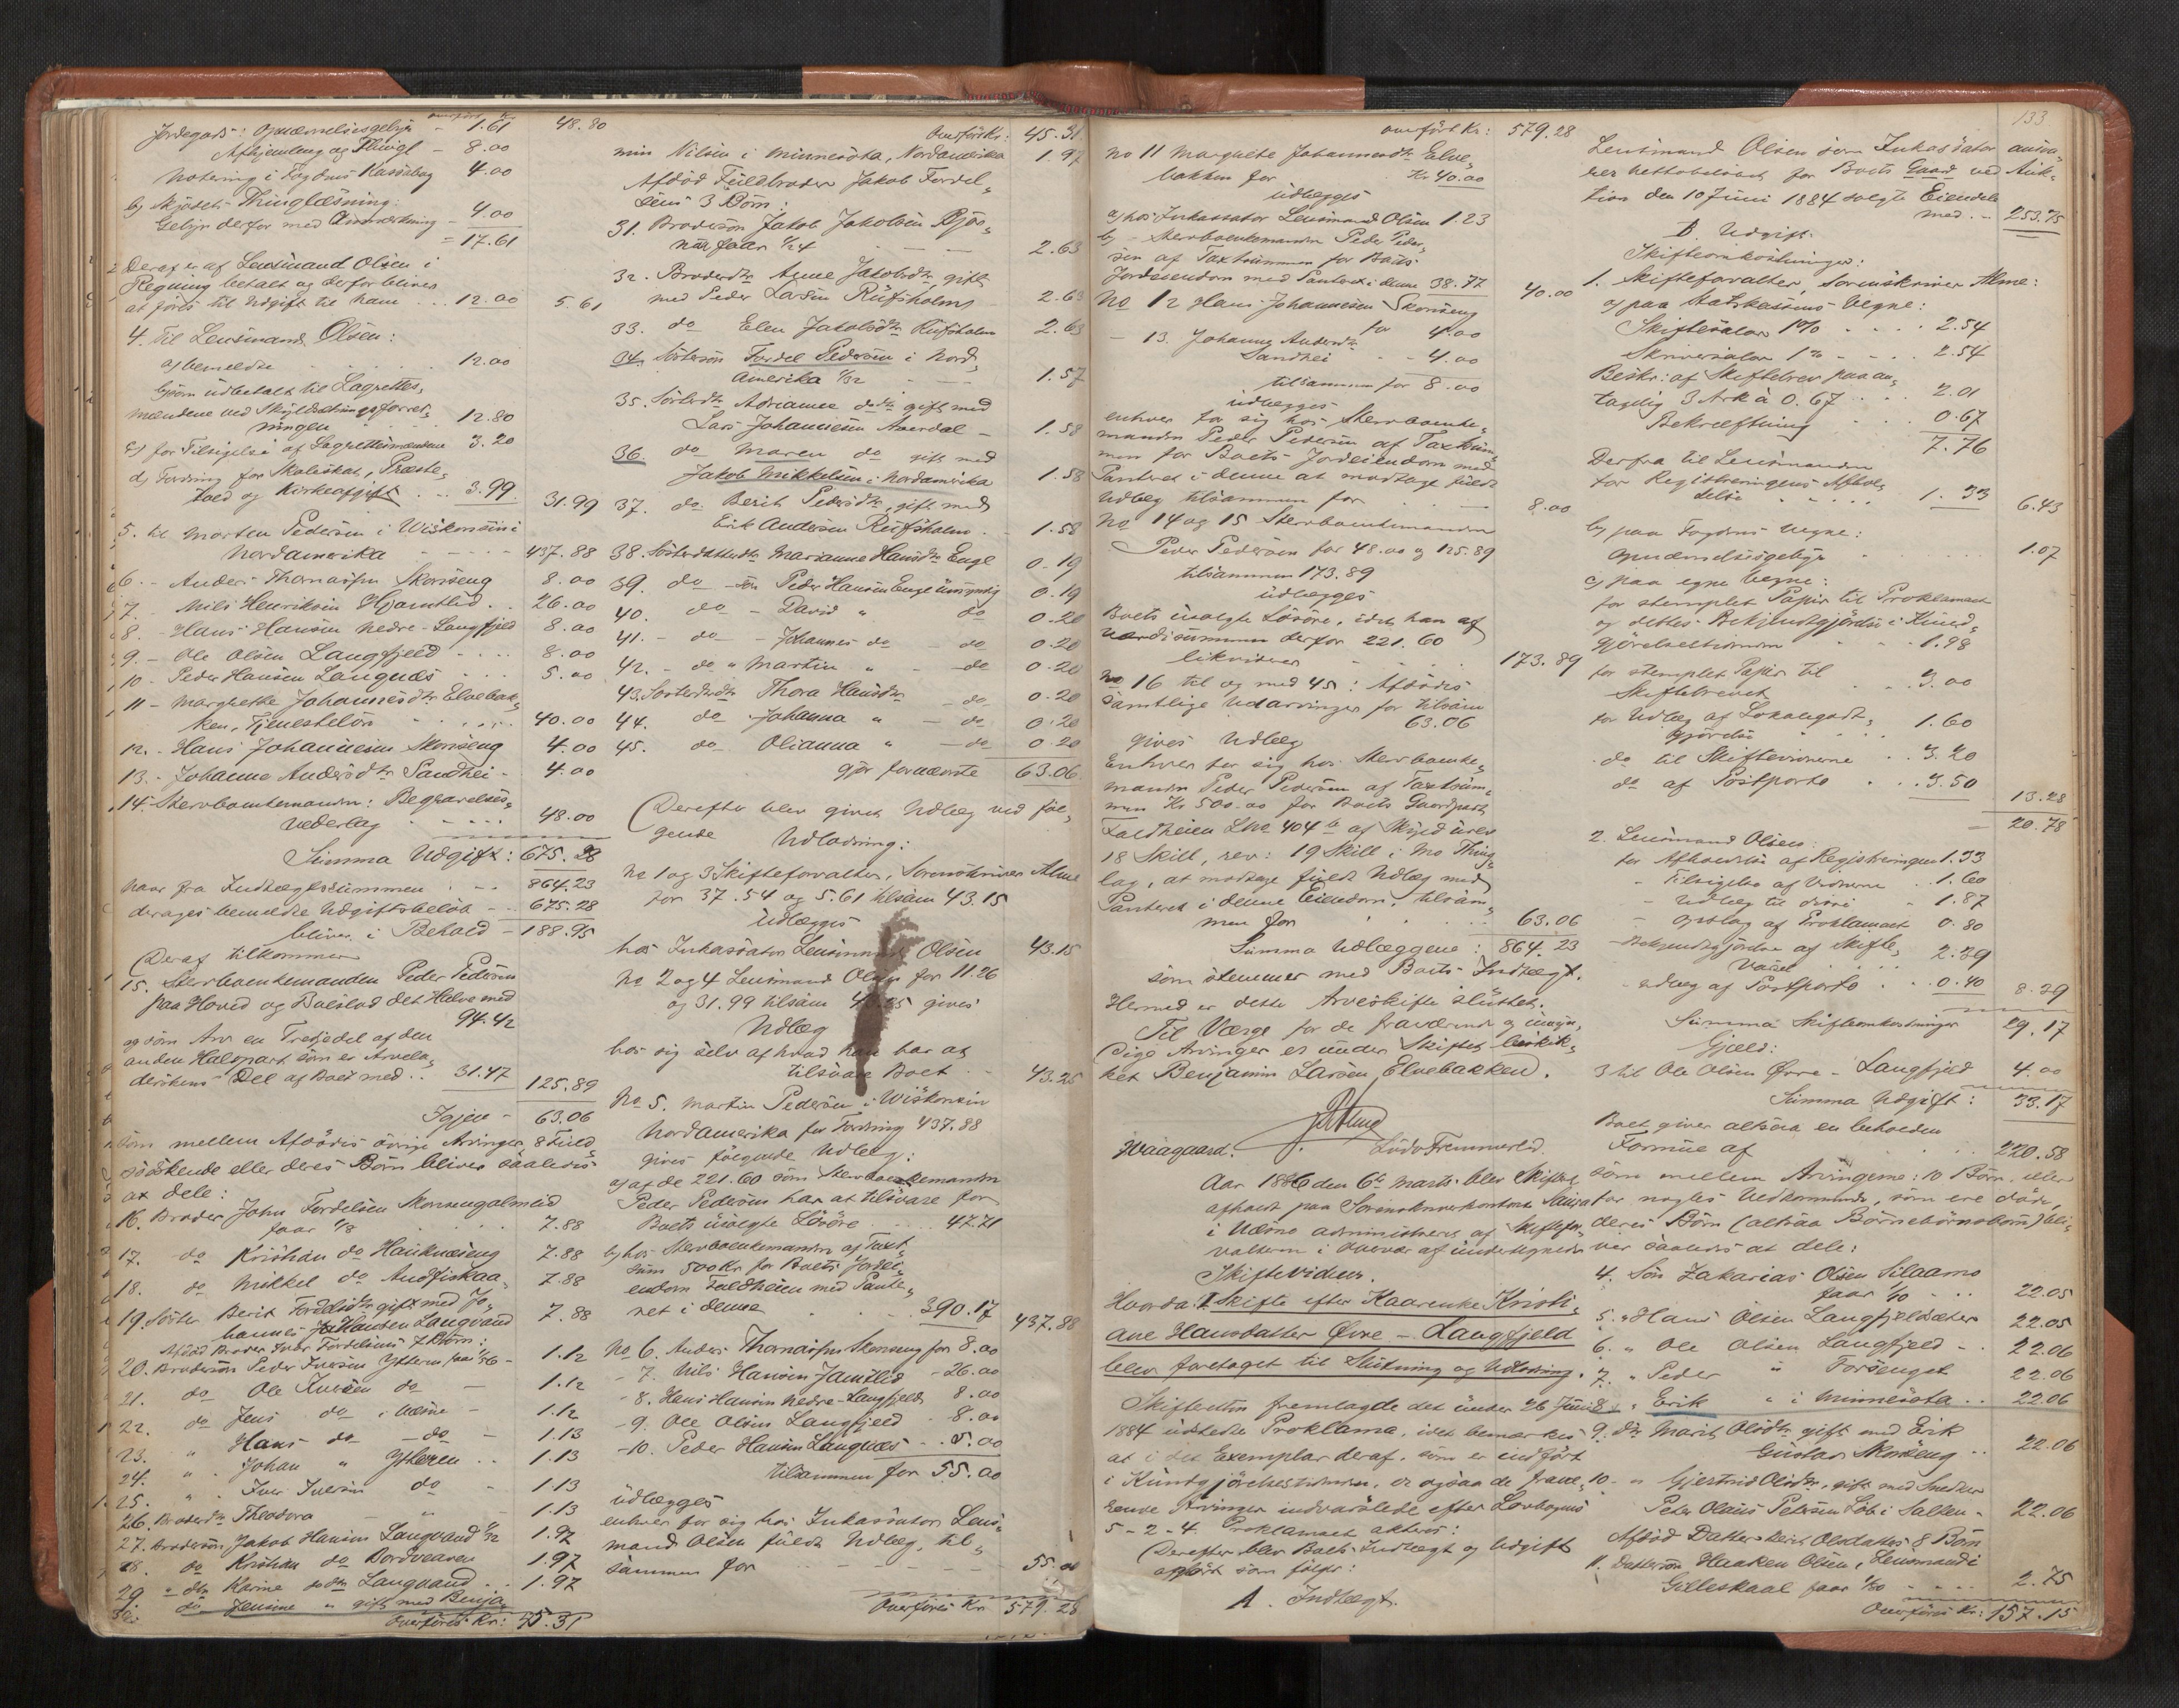 overført Kr:
Jordegods: Opnævnelsesgebyr - 1.61 48.80
Afhjemling og Thingl - 8.00
Notering i Fogdens Kassabog 4.00
b) Skjødets Thinglæsning:
Gebyr derfor med Anmærkning - 4.00
= 17.61
Deraf er af Lensmand Olsen i
Regning betalt og derfor blives
at føres til Udgift til ham .. 12.00 5.61
4. Til Lensmand Olsen:
a) bemeldte 12.00
b) som udbetalt til Lagrettes,
mændene ved Skyldsætningsforret,
ningen 12.80
c) for Tilsigelse af Lagrettesmændene 3.20
d) Fordring for Skoleskat, Præste,
told og Kirkeafgift .. 3.99 31.99
5. til Morten Pedersen i Wiskonsin i
Nordamerika - - - - 437.88
6. - Anders Thomassen Skonseng 8.00
7. Nils Henriksen Hjamtlid .. 26.00
8. - Hans Hansen Nedre-Langfjeld 8.00
9. - Ole Olsen Langfjeld - - - 8.00
10 - Peder Hansen Langnæs 5.00
11 - Margrethe Johannesdtr Elvebak,
ken, Tjenesteløn 40.00
12. - Hans Johannesen Skonseng 4.00
13. - Johanna Andersdtr Sandhei - 4.00
14. Stervboenkemanden: Begravelses,
vederlag 48.00
Summa Udgift: 675.28
Naar fra Indtægtssummen - - 864.23
drages bemeldte Udgiftsbeløb - 675.28
bliver i Behold - 188.95
Deraf tilkommer
15. Stervboenkemanden Peder Pedersen
paa Hoved og Boeslod det Halve med
94.42
og som Arv en Tredjedel af den
anden Halvpart som er Arvela,
derskens Del af Boet med .. 31.47 125.89
Igjen - 63.06
som mellem Afdødes øvrige Arvinger 8 Fuld
søskende eller deres Børn bliver saaledes
at dele:
16. Broder John Fordelsen Skonsengalmlid
faar 1/8 7.88
17. do Kristian do Hauknæseng 7.88
18. do Mikkel do Andfiskaa, 7.88
19. Søster Berit Fordelsdtr gift med Jo,
hannes Hansen Langvand 7.88
Afdød Broder Iver Fordelsens 7 Børn:
20. Brodersøn Peder Iversen Ytteren faar 1/56 - 1.12
21. do Ole Iversen do - 1.12
22. do Jens do i Næsne - 1.12
23. " Hans do - do - 1.13
24. " Johan " Ytteren .. 1.13
25. " Iver Iversen do - 1.13
26. Broderdtr Theodora 1.13
27. Brodersøn Jakob Hansen Langvand 1/32 1.97
28. do Kristian do Bordvedaven 1.97
29. " dtr Karine do dtr Langvand .. 1.97
30. do Jensine " gift med Benja,
Overføres Kr: 45.31
Overført Kr: 45.31
min Nilsen i Minnesota, Nordamerika 1.97
Afdød Fuldbroder Jakob Fordel,
sens 3 Børn:
31. Brodersøn Jakob Jakobsen Bjør,
næs faar 1/24 2.63
32. Broderdtr Anne Jakobsdtr gift
med Peder Larsen Rufsholm 2.63
33. do Elen Jakobsdtr Rufsholm 2.63
34. Søstersøn Fordel Pedersen i Nord,
Amerika 1/32 1.57
35. Søsterdtr Adrianne do dtr gift med
Lars Johannesen Averdal - 1.58
36. do Maren do gift med
Jakob Mikkelsen i Nordamerika 1.58
37. do. Berit Pedersdtr, gift med
Erik Andersen Rufsholm. - 1.58
38. Søsterdatterdtr Marianne Hansdtr Enge 0.19
39. do - søn Peder Hansen Enge umyndig 0.19
40. do - David " do 0.20
41. - do - Johannes do - do 0.20
42. - do " Martin " - do 0.20
43. Søsterdtrdtr Thora Hansdtr - do 0.20
44. do Johanna " - do 0.20
45. do Olianna " - do 0.20
gjør forannævnte 63.06
Derefter blev givet Udlæg ved føl,
gende Udlodning:
No 1 og 3 Skifteforvalter, Sorenskriver Alme
for 37.54 og 5.61 tilsam 43.15
udlægges
hos Inkassator Lensmand Olsen 43.15
No 2 og 4 Lensmand Olsen for 11.26
og 31.99 tilsam 43.25 gives
Udlæg
hos sig selv af hvad han har at
tilsvare Boet - 43.25
No 5. Martin Pedersen i Wiskonsin
Nordamerika for Fordring 437.88
gives følgende Udlæg:
a) af de 221.60 som Stervboenkemanden
Peder Pedersen har at tilsvare for
Boets usolgte Løsøre .... 47.71
b) hos Stervboenkemanden af Taxt,
sum 500 Kr. for Boets Jordei,
endom Foldheien med Pante,
ret i denne 390.17 437.88
No 6. Anders Thomassen Skonseng for 8.00
- 7. Nils Hansen Jamtlid - 26.00
- 8. Hans Hansen Nedre-Langfjeld 8.00
- 9. Ole Olsen Langfjeld - 8.00
- 10. Peder Hansen Langnæs - . 5.00
tilsammen for 55.00
udlægges
enhver for sig hos Inkassator Lens,
mand Olsen fuldt Udlæg, til,
sammen for - - - 55.00
Overføres Kr 579.28
overført Kr: 579.28
No 11 Margrethe Johannesdtr Elve,
bakken for Kr 40.00
udlægges
a) hos Inkassator Lensmand Olsen 1.23
b) - Stervboenkemanden Peder Peder,
sen af Taxtsummen for Boets
Jordeiendom med Panteret i denne 38.77 40.00
No 12 Hans Johannesen Skonseng
for 4.00
- 13. Johanna Andersdtr
Sandhei - - 4.00
tilsammen for 8.00
udlægges
enhver for sig hos Stervboenke,
manden Peder Pedersen af Taxtsum,
men for Boets Jordeiendom med
Panteret i denne at modtage fuldt
Udlæg tilsammen for 8.00
No 14 og 15 Stervboenkemanden
Peder Pedersen for 48.00 og 125.89
tilsammen 173.89
udlægges
Boets usolgte Løsøre, idet han af
Værdisummen derfor 221.60
likviderer 173.89
No 16 til og med 45: Afdødes
samtlige Udarvinger for tilsam
63.06
gives Udlæg
Enhver for sig hos Stervboenke,
manden Peder Pedersen af Taxtsum,
men Kr 500.00 for Boets Gaardpart
Foldheien Lno 404 b af Skyld urev
18 Skill, rev: 19 Skill i Mo Thing,
lag, at modtage fuldt Udlæg med
Panteret i denne Eiendom, tilsam,
men for 63.06
Summa Udlæggene: 864.23
som stemmer med Boets Indtægt.
Hermed er dette Arveskifte sluttet.
Til Værge for de fraværende og umyn,
dige Arvinger er under Skiftet beskik,
ket Benjamin Larsen Elvebakken.
Aar 1886 den 6te Marts blev Skifteret
afholdt paa Sorenskriverkontoret
i Næsne administreret af Skiftefor,
valteren i Overvær af undertegnede
Skiftevidner.
Hvorda: I Skifte efter Kaarenke Kristi,
ane Hansdatter Øvre-Langfjeld
blev foretaget til Slutning og Udlodning.
Skifteretten fremlagde det under 26 Juni
1884 udstedte Proklama, idet bemærkes
at i det Exemplar deraf, som er indført
i Kundgjørelsestidende, er ogsaa de fravæ,
rende Arvinger indvarslede efter Lovbogens
5-2-4. Proklamaet akteres:
Derefter blev Boets Indtægt og Udgift
opgjort som følger:
A. Indtægt.
133
Lensmand Olsen som Inkassator ansva,
rer Nettobeløbet for Boets Gaard ved Auk,
tion den 10 Juni 1884 solgte Eiendele
med .. 253.75
B. Udgift.
Skifteomkostninger:
1. Skifteforvalter, Sorenskriver Alme:
a) paa Statskassens Vegne:
Skiftesalær 1% .... 2.54
Skriversalær 1% - - .. 2.54
Beskr: af Skiftebrev paa an,
tagelig 3 Ark à 0.67 2.01
Bekræftning 0.67
7.76
Derfra til Lensmanden
for Registreringens Afhol,
delse 1.33 6.43
b) paa Fogdens Vegne:
Opnævnelsesgebyr 1.07
c) paa egne Vegne:
for stemplet Papir til Proklamaet
og dettes Bekjendtgjørelse i Kund,
gjørelsestidenden - - 1.98
for stemplet Papir til
Skiftebrevet 3.00
for Udlæg af Lokalgodt,
gjørelse 1.60
do til Skiftevidnerne .. 3.20
do af Postporto 3.50 13.28
20.78
2. Lensmand Olsen:
for Afholdelse af Registreringen 1.33
- Tilsigelse af Vidnerne .. 1.60
- Udlæg til disse - 1.87
- Opslag af Proklamaet 0.80
- Bekjendtgjørelse af Skifte,
Varsel 2.39
- Udlæg af Postporto .. 0.40 8.39
Summa Skifteomkostninger 29.17
Gjæld:
3 til Ole Olsen Øvre-Langfjeld 4.00
Summa Udgift: 33.17
Boet giver altsaa en beholden
Formue af 220.58
som mellem Arvingerne: 10 Børn, eller
for nogles Vedkommende, som ere døde,
deres Børn (altsaa Børnebørnsbørn) bli,
ver saaledes at dele:
4. Søn Zakarias Olsen Silaamo
faar 1/10 .. 22.05
5. " Hans Olsen Langfjeldsæter 22.05
6. " Ole Olsen Langfjeld - . 22.06
7. " Peder " Forsenget 22.06
8. " Erik " i Minnesota .. 22.06
9. dtr Marit Olsdtr gift med Erik
Gustav Skonseng .. 22.06
10 - " Gjertrud Olsdtr, gift med Snedker
Peter Olaus Petersen Løb i Salten - 22.06
Afdød Datter Berit Olsdatters 8 Børn
11. Dattersøn Haaken Olsen, Lensmand i
Gilleskaal faar 1/80 2.75
Overføres Kr: 157.15